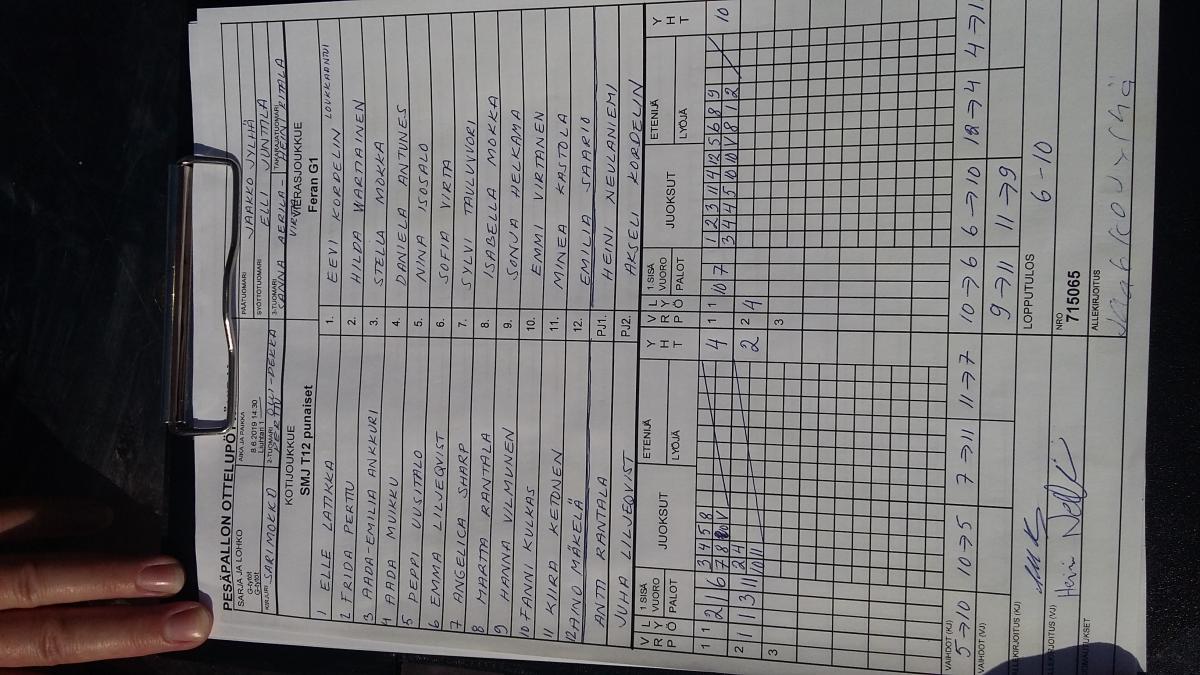 PESÄPALLON OTTELUPÖ
SARJA JA LOHKO
G-tytöt
G-tytöt
AIKA JA PAIKKA
8.6.2019 14:30
Liuhtari 1
PÄÄTUOMARI
JAAKKO JYLHÄ
SYÖTTÖTUOMARI
ELLI JUNTTILA
KIRJURI SARI MOKKO
2-TUOMARI OLLI-PEKKA
PERTTU
3-TUOMARI
SANNA AERILA-
VIRTA
TAKARAJATUOMARI
HEINI KITALA
KOTIJOUKKUE
SMJ T12 punaiset
VIERASJOUKKUE
Feran G1
1 ELLE LATIKKA
2 FRIDA PERTTU
3 AADA-EMILIA ANKKURI
4 AADA MUIKKU
5 PEPPI UUSITALO
6 EMMA LILJEQVIST
7 ANGELICA SHARP
8 MARTTA RANTALA
9 HANNA VILMUNEN
10 FANNI KULKAS
11 KIIRA KETONEN
12 AINO MÄKELÄ
ANTTI RANTALA
JUHA LILJEQVIST
1. EEVI KORDELIN LOUKKAANTUI
2. HILDA WARTIAINEN
3. STELLA MOKKA
4. DANIELA ANTUNES
5. NINA ISOSALO
6. SOFIA VIRTA
7. SYLVI TAULUVUORI
8. ISABELLA MOKKA
9. SONJA HELKAMA
10. EMMI VIRTANEN
11. MINEA KASTOLA
12. EMILIA SAARIO
PJ1. HEINI NEULANIEMI
PJ2. AKSELI KORDELIN
V R P
L Y Ö
1.SISÄ
VUORO
PALOT
JUOKSUT
ETENIJÄ
LYÖJÄ
Y H T
V R P
L Y Ö
1.SISÄ
VUORO
PALOT
JUOKSUT
ETENIJÄ
LYÖJÄ
Y H T
1 1 2 1 6 3 4 5 8 4
2 1 1 3 11 2 4 2
10 11
3
1 1 10 7 1 2 3 11 4 12 5 6 8 9 10
3 4 4 5 10 10 V 8 1 2
2 2 4
3
VAIHDOT (KJ)
5→10 10→5 7→11 11→7
10→6 6→10 12→4 4→1
VAIHDOT (VJ)
9→11 11→9
ALLEKIRJOITUS (KJ)
LOPPUTULOS
6-10
ALLEKIRJOITUS (VJ)
NRO
715065
ALLEKIRJOITUS